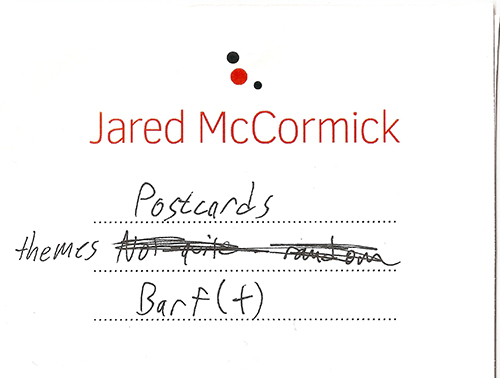 Jared McCormick
Postcards
themes Not quite random
Barf(t)